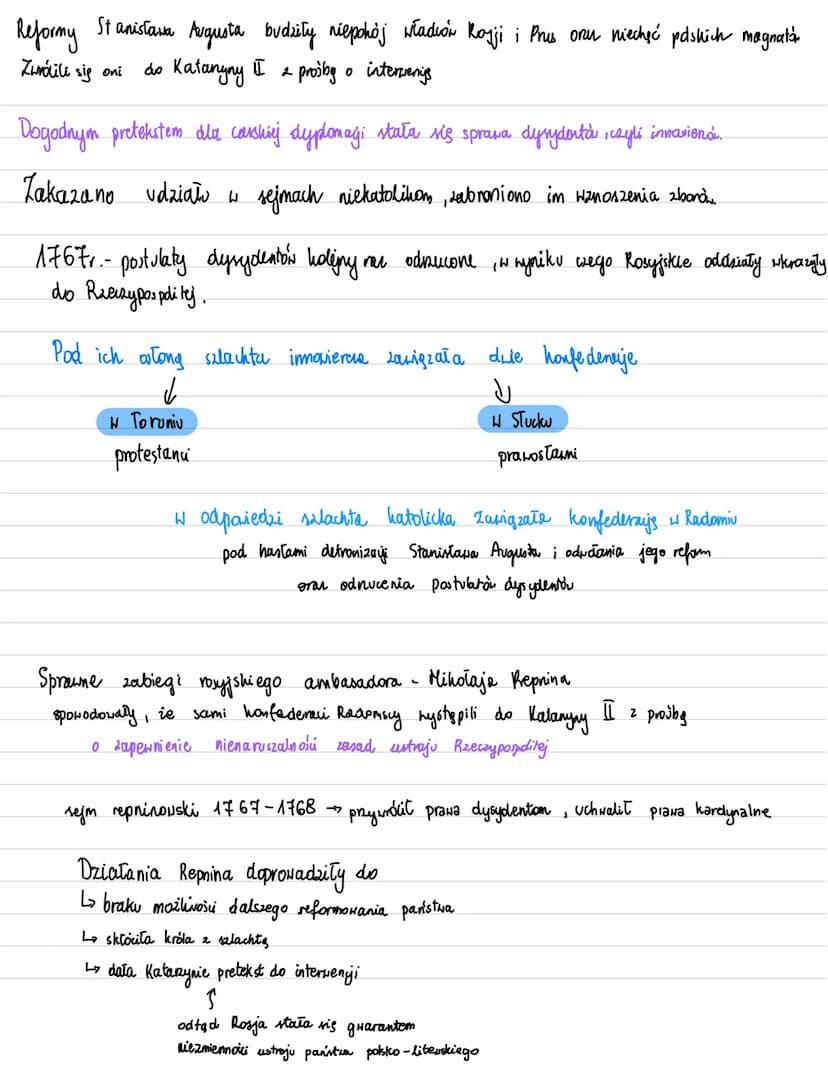 Reformy Stanisława Augusta budziły niepokój władców Rosji i Prus oraz niechęć polskich magnatów
Zwrócili się oni do Katarzyny II z prośbą o interwencję
Dogodnym pretekstem dla carskiej dyplomacji stała się sprawa dysydentów, czyli innowierców.
Zakazano udziału w sejmach niekatolikom, zabroniono im wznoszenia zborów.
1767r.- postulaty dysydentów kolejny raz odrzucone, w wyniku czego Rosyjskie oddziały wkroczyły
do Rzeczypospolitej.
Pod ich osłoną szlachta innowiercza zawiązała dwie konfederacje
↓ ↓
w Toruniu w Słucku
protestanci prawosławni
W odpowiedzi szlachta katolicka zawiązała konfederację w Radomiu
pod hasłami detronizacji Stanisława Augusta i odwołania jego reform
oraz odrzucenia postulatów dysydentów
Sprawne zabiegi rosyjskiego ambasadora - Mikołaja Repnina
spowodowały, że sami konfederaci Radomscy wystąpili do Katarzyny II z prośbą
o zapewnienie nienaruszalności zasad ustroju Rzeczypospolitej
sejm repninowski 1767-1768 → przywrócił prawa dysydentom, uchwalił prawa kardynalne
Działania Repnina doprowadziły do
↳ braku możliwości dalszego reformowania państwa
↳ skłóciła króla z szlachtą
↳ dała Katarzynie pretekst do interwencji
↑
odtąd Rosja stała się gwarantem
niezmienności ustroju państwa polsko-litewskiego